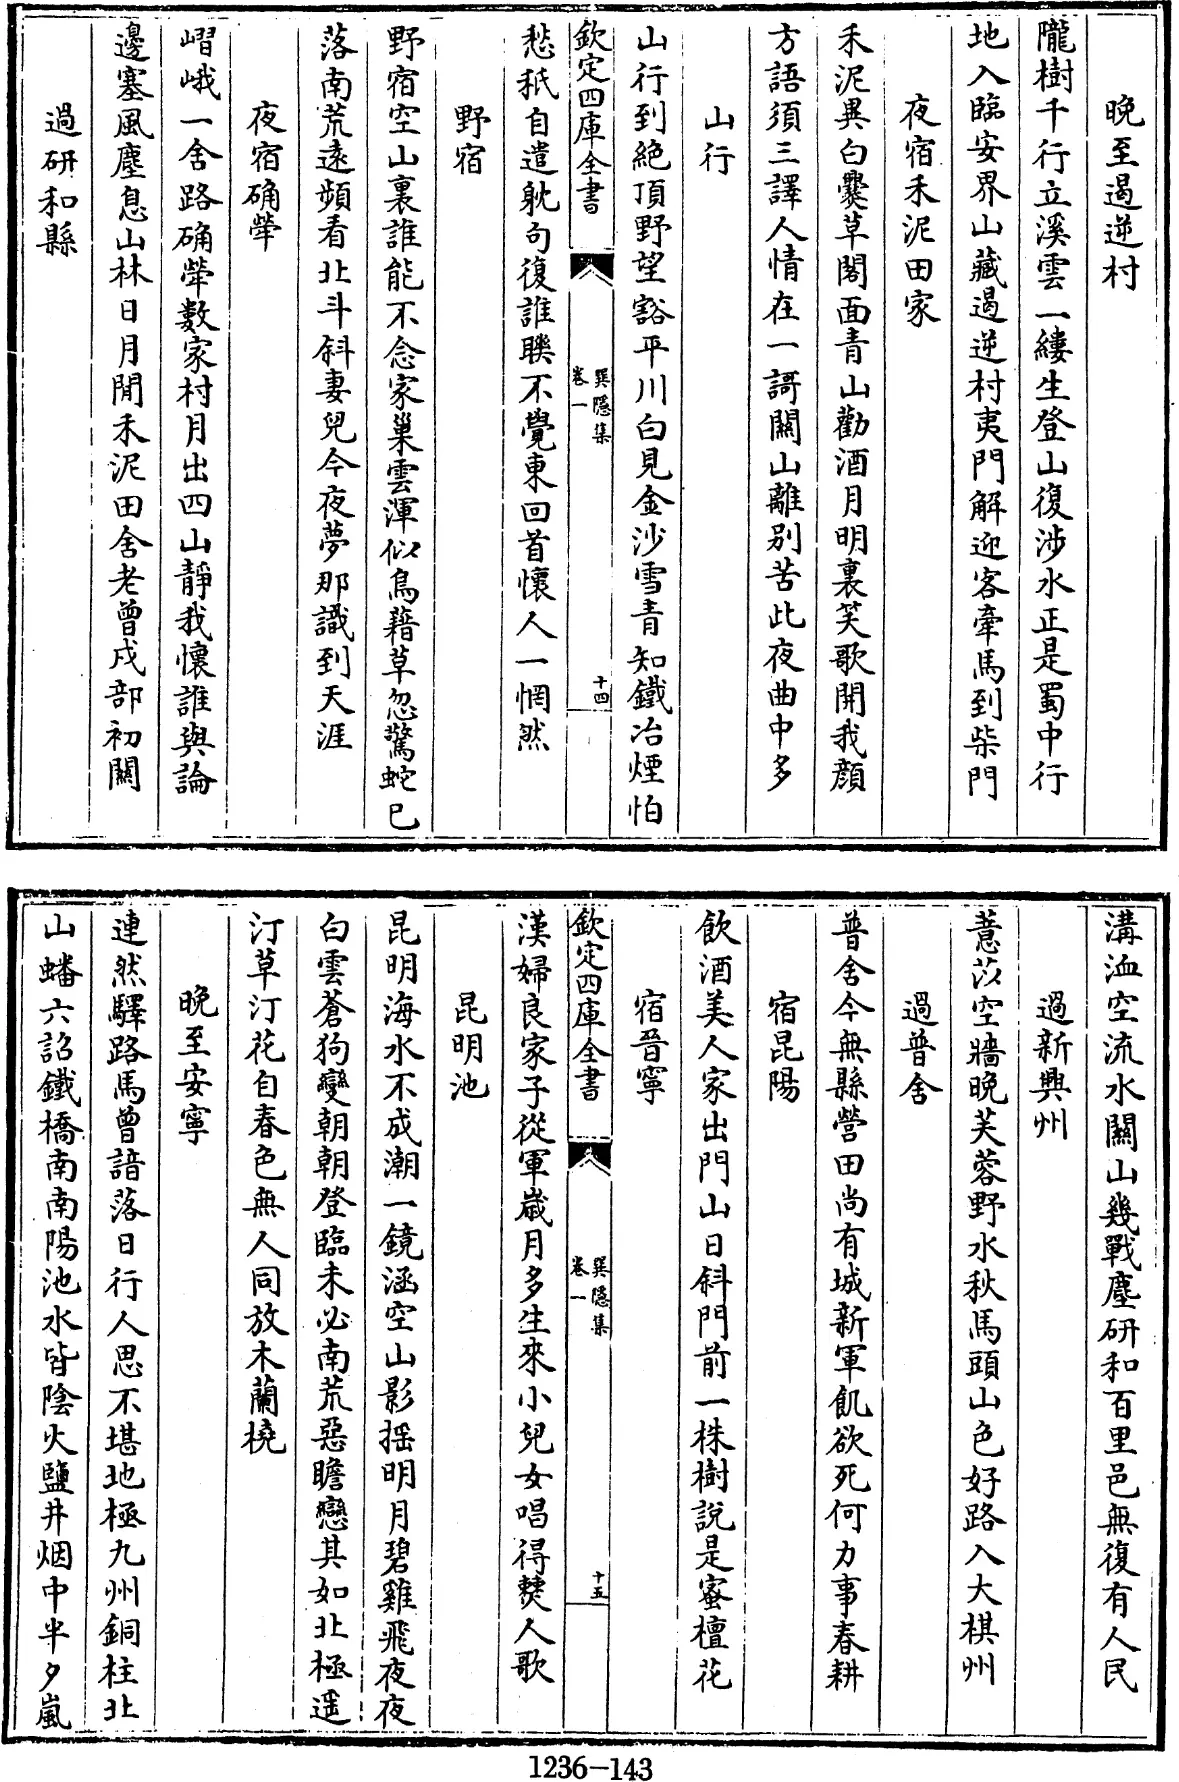 晚至遏逆村
隴樹千行立溪雲一縷生登山復涉水正是蜀中行
地入臨安界山藏遏逆村夷門解迎客牽馬到柴門
夜宿禾泥田家
禾泥異白爨草閣面青山勸酒月明裏笑歌開我顔
方語須三譯人情在一謌關山離别苦此夜曲中多
山行
山行到絶頂野望豁平川白見金沙雪青知鐵冶煙怕
欽定四庫全書
巽隠集
卷一
十四
愁秖自遣躭句復誰聨不覺東回首懷人一惘然
野宿
野宿空山裏誰能不念家巢雲渾似鳥藉草忽驚蛇已
落南荒逺頻看北斗斜妻兒今夜夢那識到天涯
夜宿确犖
嶍峨一舍路确犖數家村月出四山靜我懷誰與論
邊塞風塵息山林日月閒禾泥田舍老曾戍部初關
過研和縣
溝洫空流水關山幾戰塵研和百里邑無復有人民
過新興州
薏苡空牆晚芙蓉野水秋馬頭山色好路入大棋州
過普舍
普舍今無縣營田尚有城新軍飢欲死何力事春耕
宿昆陽
飲酒美人家出門山日斜門前一株樹説是蜜檀花
宿晉寧
欽定四庫全書
巽隠集
卷一
十五
漢婦良家子從軍嵗月多生來小兒女唱得僰人歌
昆明池
昆明海水不成潮一鏡涵空山影摇明月碧雞飛夜夜
白雲蒼狗變朝朝登臨未必南荒惡瞻戀其如北極遥
汀草汀花自春色無人同放木蘭橈
晚至安寧
連然驛路馬曾諳落日行人思不堪地極九州銅柱北
山蟠六詔鐵橋南南陽池水皆陰火鹽井烟中半夕嵐
1236-143